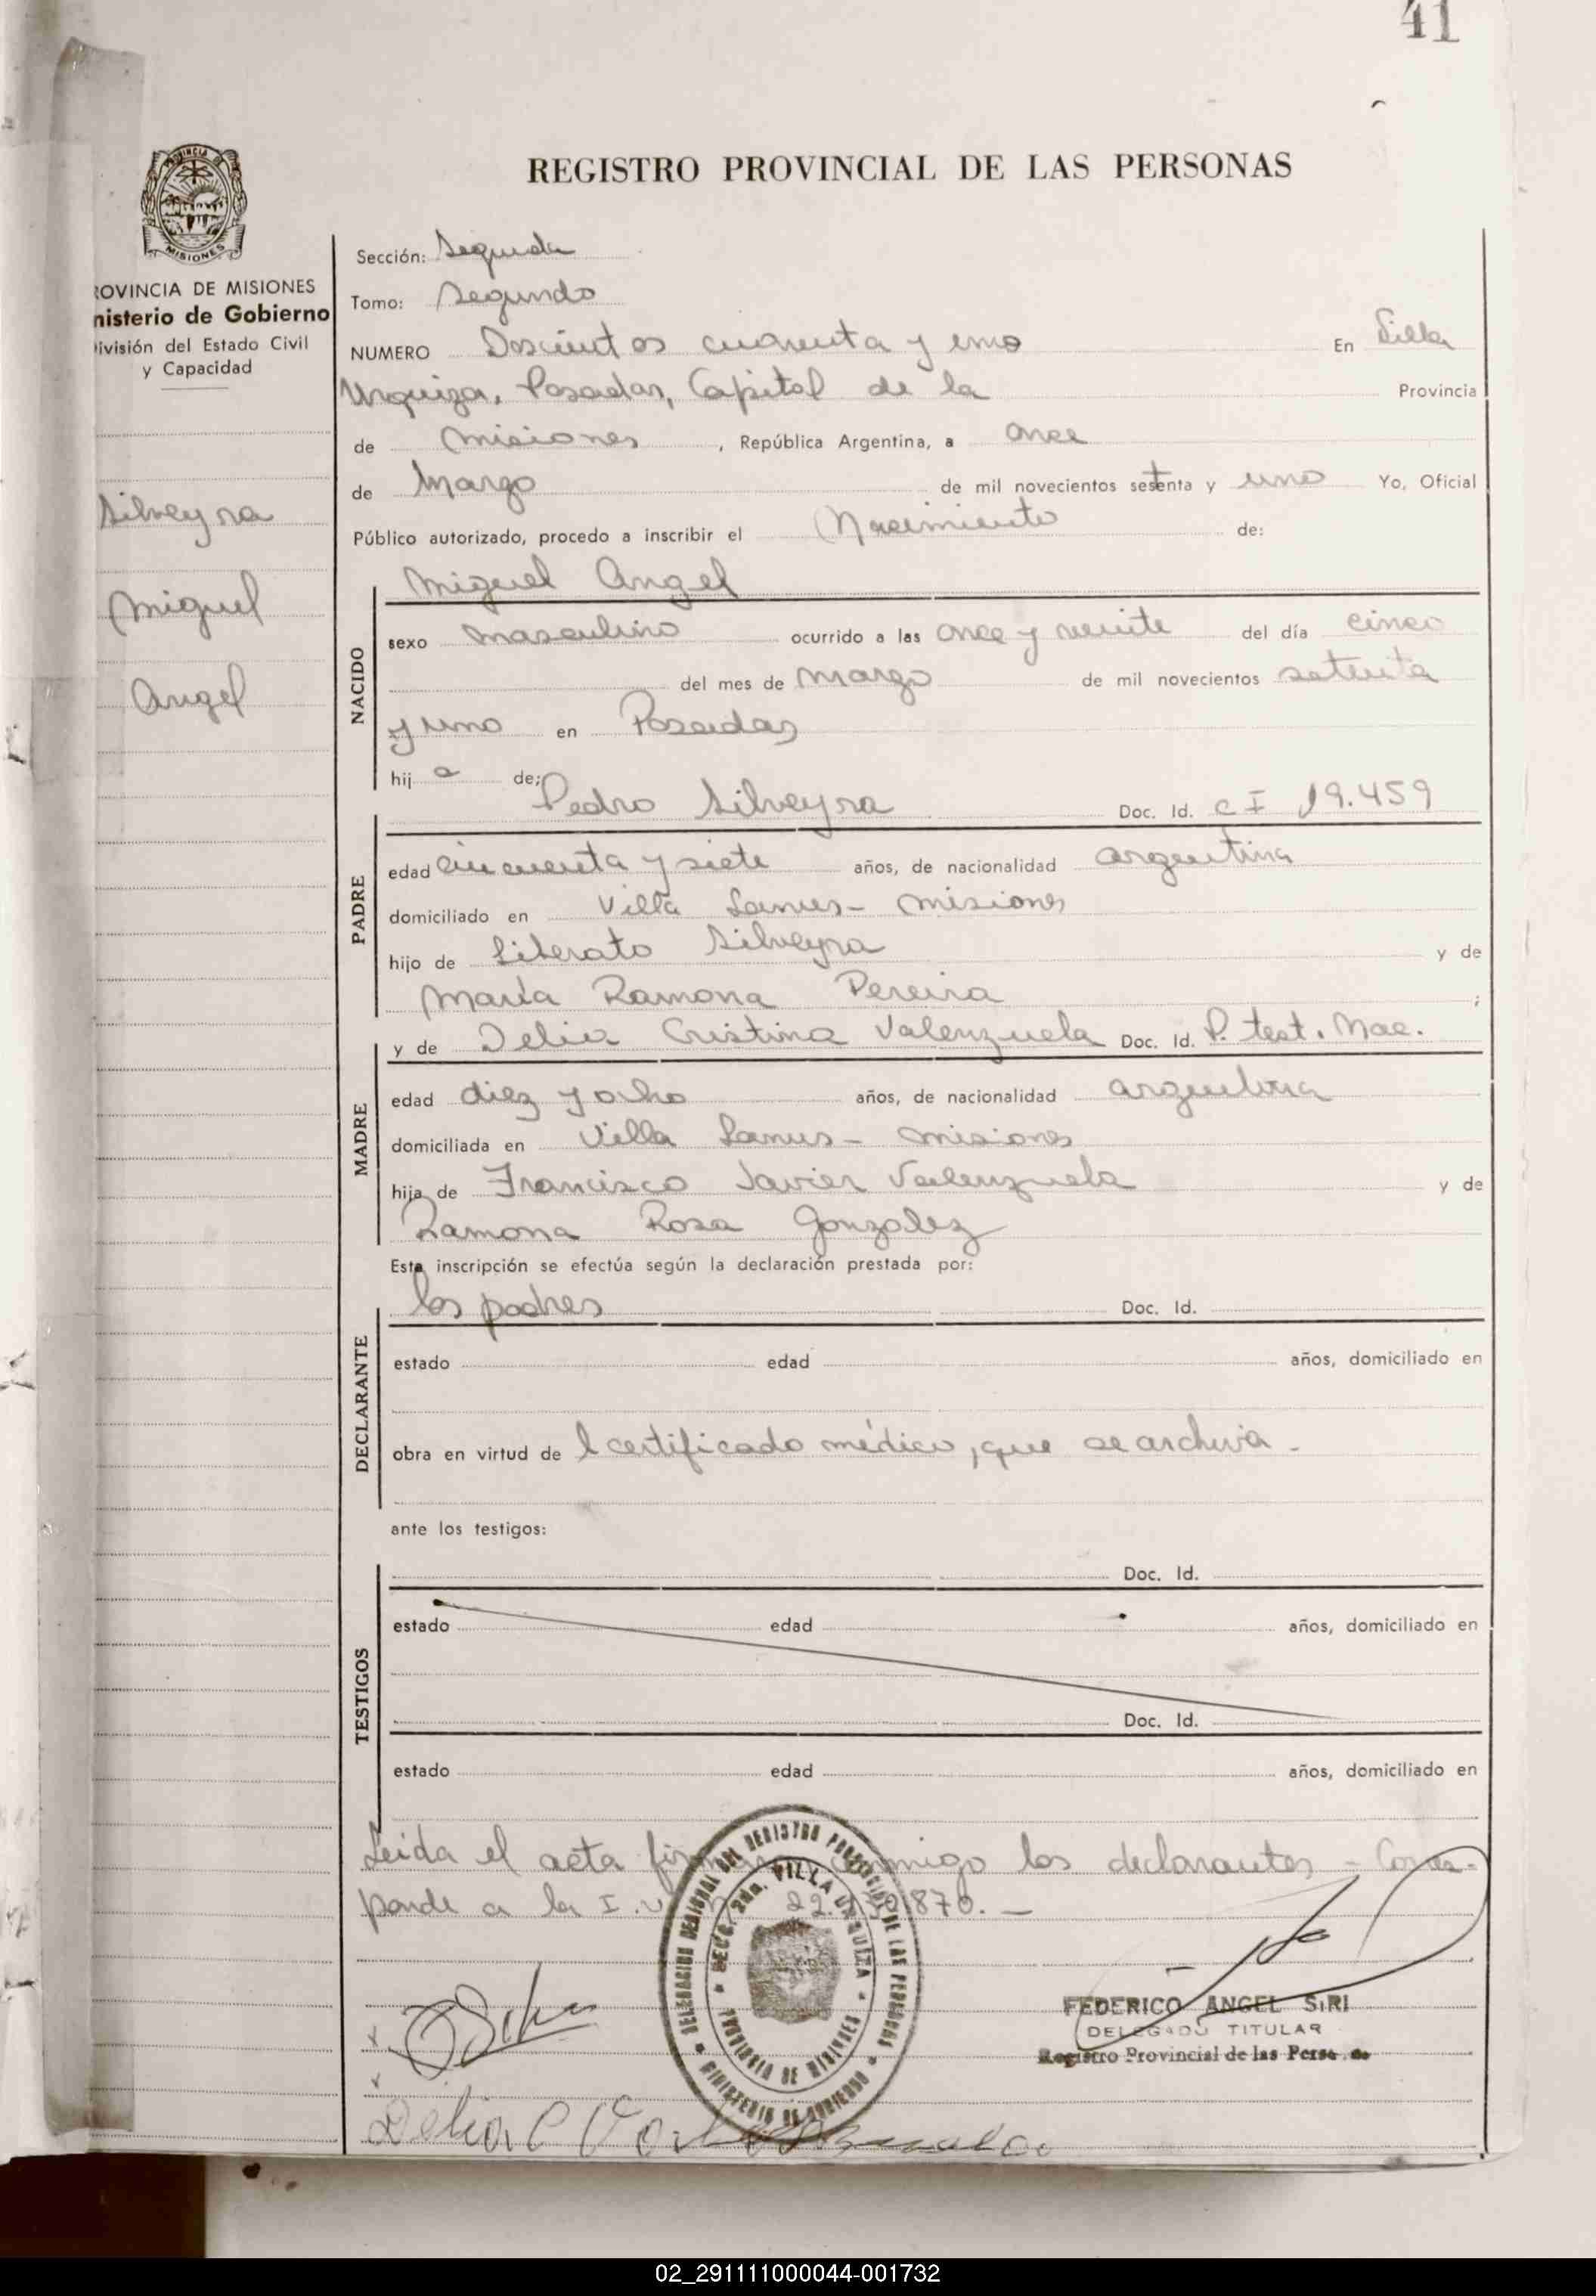 41
REGISTRO PROVINCIAL DE LAS PERSONAS
PROVINCIA DE
MISIONES
ROVINCIA DE MISIONES
nisterio de Gobierno
ivisión del Estado Civil
y Capacidad
Silveyra
Miguel
Angel
Sección: Segunda
Tomo: Segundo
NUMERO Doscientos cuarenta y uno En Villa
Urquiza, Posadas, Capital de la Provincia
de Misiones, República Argentina, a once
de Marzo de mil novecientos setenta y uno Yo, Oficial
Público autorizado, procedo a inscribir el Nacimiento de:
NACIDO
Miguel Angel
sexo masculino ocurrido a las once y veinte del día cinco
del mes de marzo de mil novecientos setenta
y uno en Posadas
hij o de;
PADRE
Pedro Silveyra Doc. Id. C I 19.459
edad cincuenta y siete años, de nacionalidad argentina
domiciliado en Villa Lanus - Misiones
hijo de Liberato Silveyra y de
María Ramona Pereira ;
MADRE
y de Delia Cristina Valenzuela Doc. Id. P. test. Nac.
edad diez y ocho años, de nacionalidad argentina
domiciliada en Villa Lanus - Misiones
hija de Francisco Javier Valenzuela y de
Ramona Rosa Gonzalez
Esta inscripción se efectúa según la declaración prestada por:
DECLARANTE
los padres Doc. Id.
estado edad años, domiciliado en
obra en virtud de l certificado médico, que se archiva -
ante los testigos:
TESTIGOS
Doc. Id.
estado edad años, domiciliado en
Doc. Id.
estado edad años, domiciliado en
Leida el acta conmigo los declarantes - Corres-
ponde a la I.
DELEGACION REGIONAL DEL REGISTRO PROVINCIAL DE LAS PERSONAS
MINISTERIO DE GOBIERNO
SECC. 2da. VILLA URQUIZA
PROVINCIA DE MISIONES
FEDERICO ANGEL SIRI
DELEGADO TITULAR
Registro Provincial de las
Delia C
02_291111000044-001732